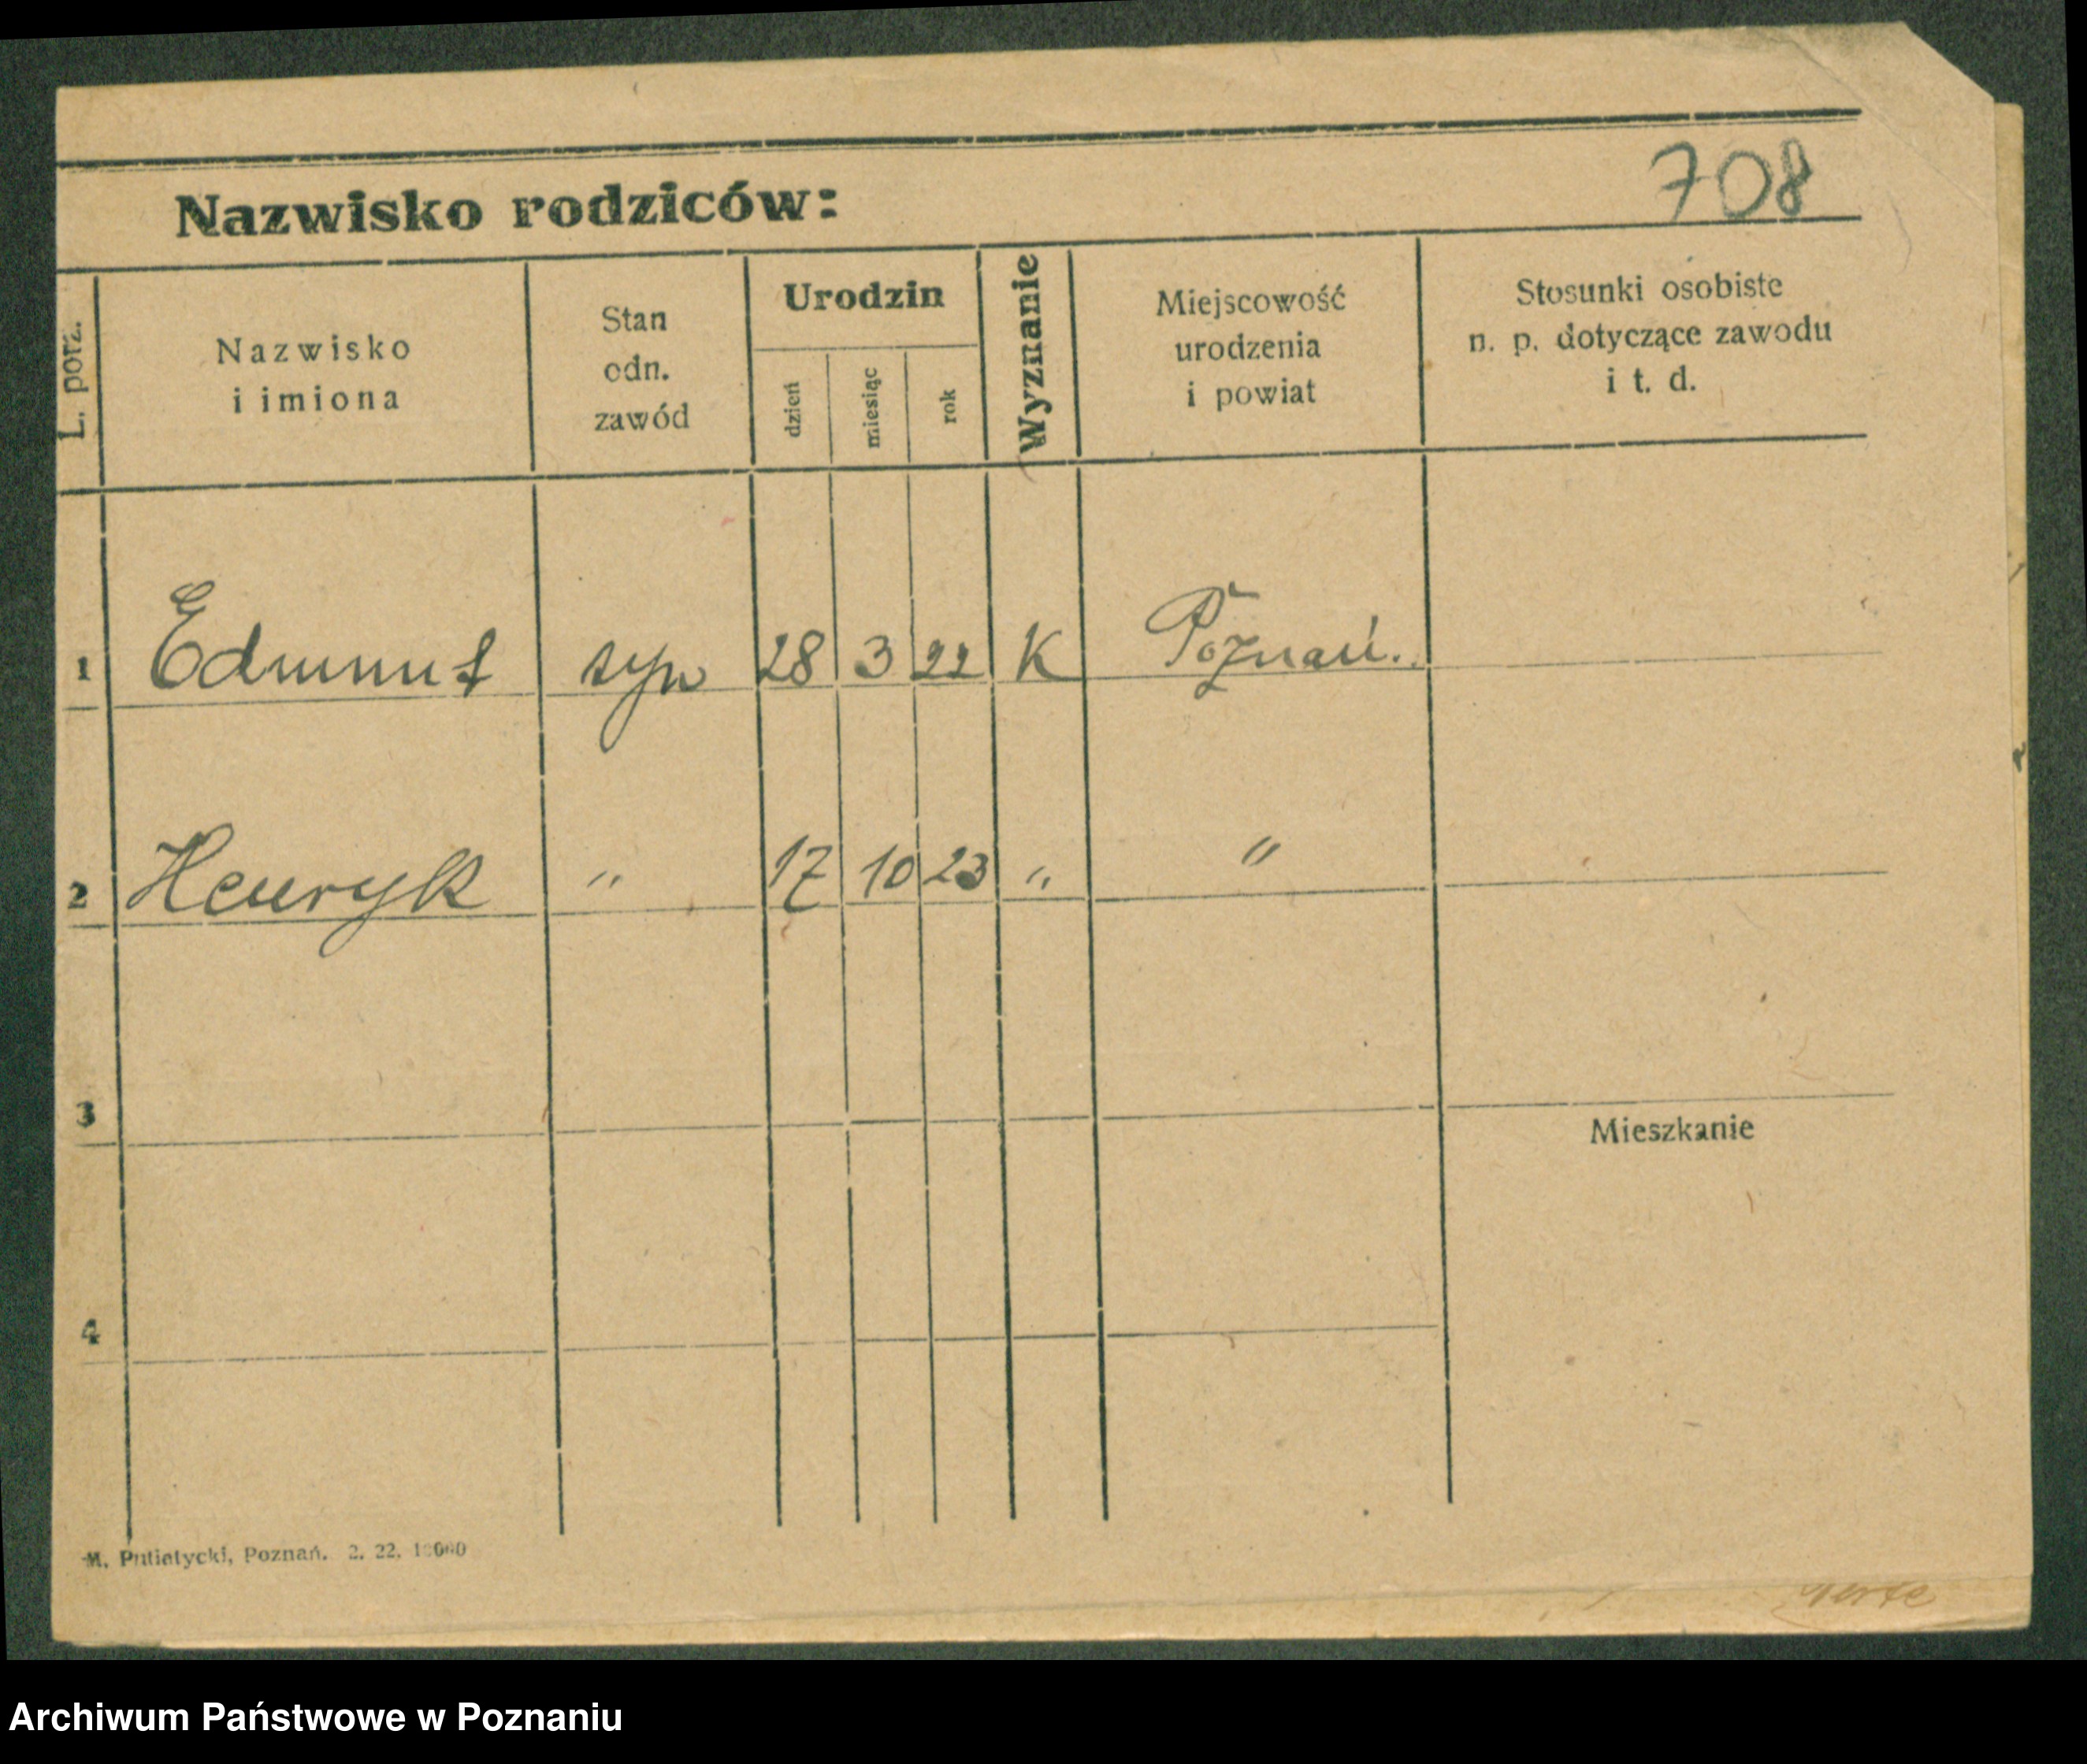 708
Nazwisko rodziców:
L. porz.
Nazwisko
i imiona
Stan
odn.
zawód
Urodzin
dzień
miesiąc
rok
Wyznanie
Miejscowość
urodzenia
i powiat
Stosunki osobiste
n. p. dotyczące zawodu
i t. d.
1 Edmunt syn 28 3 22 K Poznań.
2 Henryk " 17 10 23 " "
3
Mieszkanie
4
M. Putiatycki, Poznań. 2. 22.
Archiwum Państwowe w Poznaniu